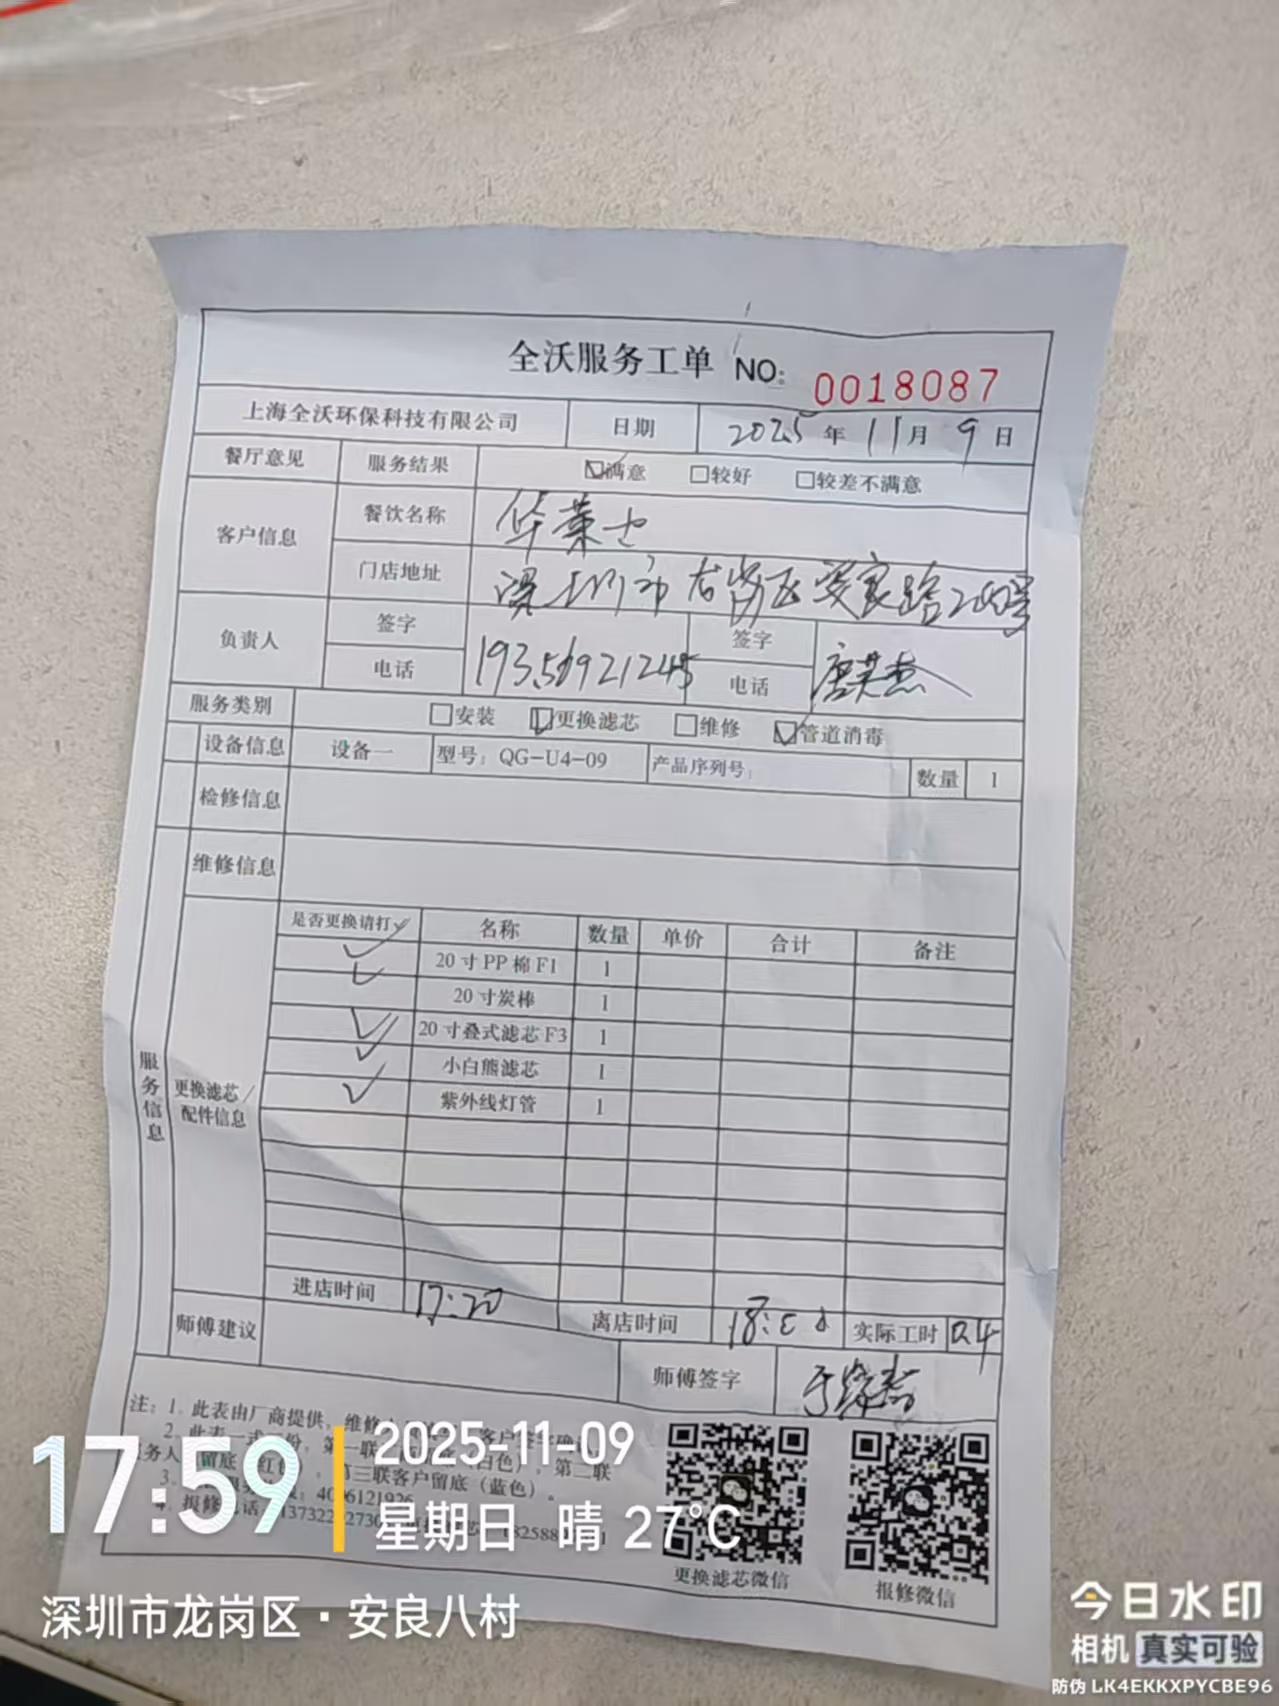 全沃服务工单 NO: 0018087
上海全沃环保科技有限公司 日期 2025年11月9日
餐厅意见 服务结果 满意 较好 较差不满意
客户信息 餐饮名称 华莱士
门店地址 深圳市龙岗区安良路
负责人 签字 签字
电话 19356921245 电话
服务类别 安装 更换滤芯 维修 管道消毒
设备信息 设备一 型号:QG-U4-09 产品序列号: 数量 1
检修信息
维修信息
服务信息
更换滤芯/配件信息
是否更换请打✓ 名称 数量 单价 合计 备注
✓ 20寸PP棉F1 1
✓ 20寸炭棒 1
✓ 20寸叠式滤芯F3 1
✓ 小白熊滤芯 1
✓ 紫外线灯管 1
进店时间 17:20 离店时间 实际工时 0.4
师傅建议 师傅签字
注:1、此表由厂商提供,维修
2、此表一式 份,第一联 白色),第二联
留底 第三联客户留底(蓝色)。
4006121926
4、报修电话
更换滤芯微信 报修微信
17:59
2025-11-09
星期日 晴 27°C
深圳市龙岗区·安良八村
今日水印
相机 真实可验
防伪 LK4EKKXPYCBE96